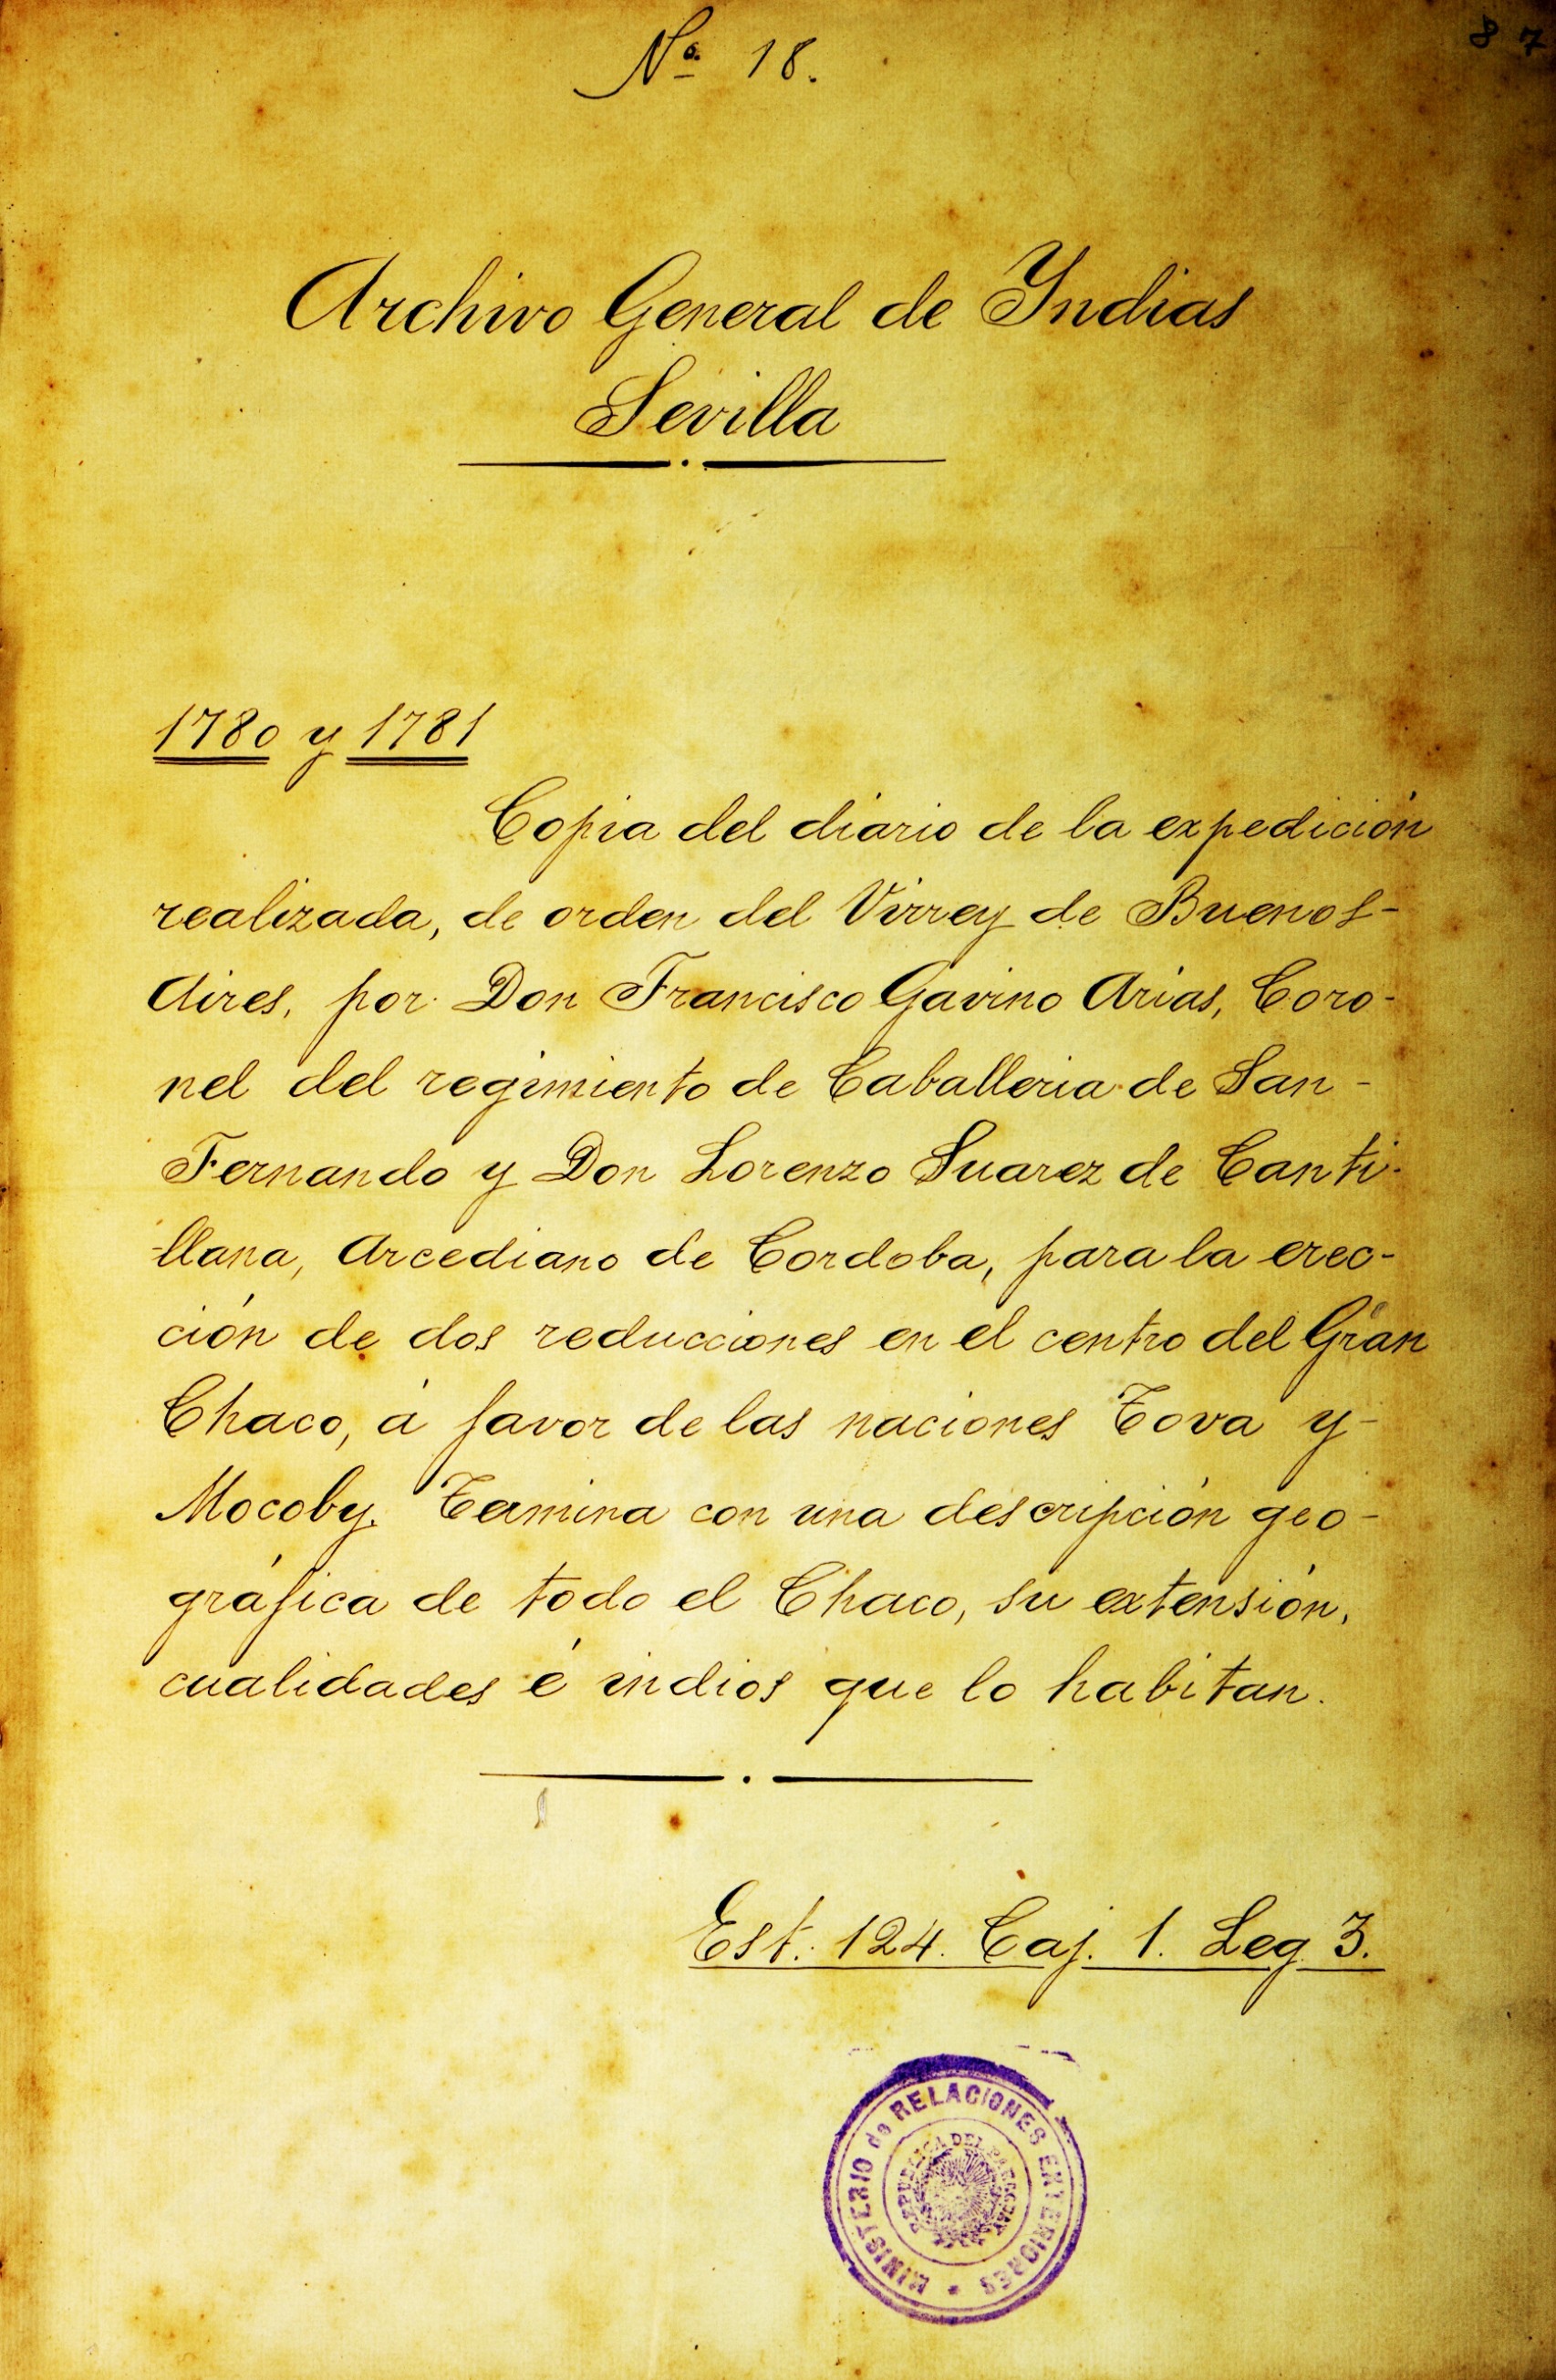 Nº 18.
87
Archivo General de Yndias
Sevilla
1780 y 1781
Copia del diario de la expedición
realizada, de orden del Virrey de Buenos-
Aires, por Don Francisco Gavino Arias, Coro-
nel del regimiento de Caballeria de San-
Fernando y Don Lorenzo Suarez de Canti-
-llana, Arcediano de Cordoba, para la erec-
ción de dos reducciones en el centro del Gran
Chaco, á favor de las naciones Tova y-
Mocoby. Termina con una descripción geo-
gráfica de todo el Chaco, su extensión,
cualidades é indios que lo habitan.
Est. 124. Caj. 1. Leg. 3.
MINISTERIO de RELACIONES EXTERIORES
REPUBLICA DEL PARAGUAY